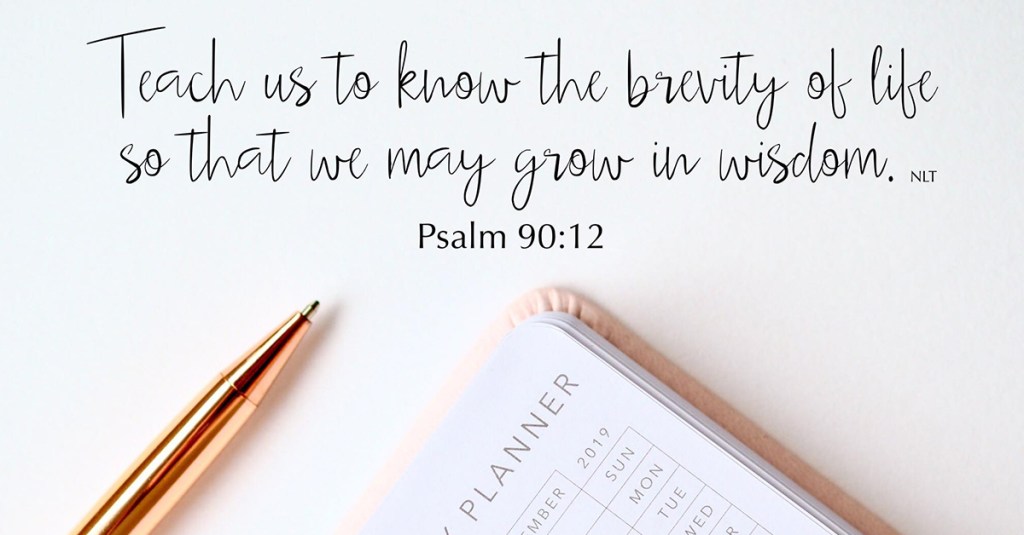 Teach us to know the brevity of life
so that we may grow in wisdom. NLT
Psalm 90:12
PLANNER
EMBER 2019
SUN
MON
TUE
WED